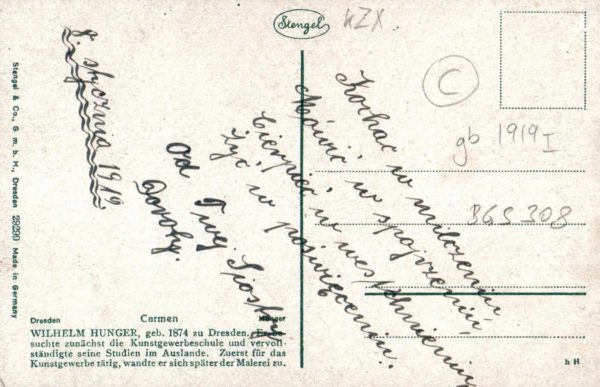 Stengel
KZX
C
gb 1919 I
BGS 308
8. stycznia 1919
Kochać w milczeniu
Mówić w spojrzeniu,
Cierpieć w westchnieniu
Żyć w poświęceniu.
Od Twej Siostry
Doroty.
Stengel & Co., G. m. b. H., Dresden 29290 Made in Germany
Dresden Carmen Hunger
WILHELM HUNGER, geb. 1874 zu Dresden. Er be-
suchte zunächst die Kunstgewerbeschule und vervoll-
ständigte seine Studien im Auslande. Zuerst für das
Kunstgewerbe tätig, wandte er sich später der Malerei zu.
h H